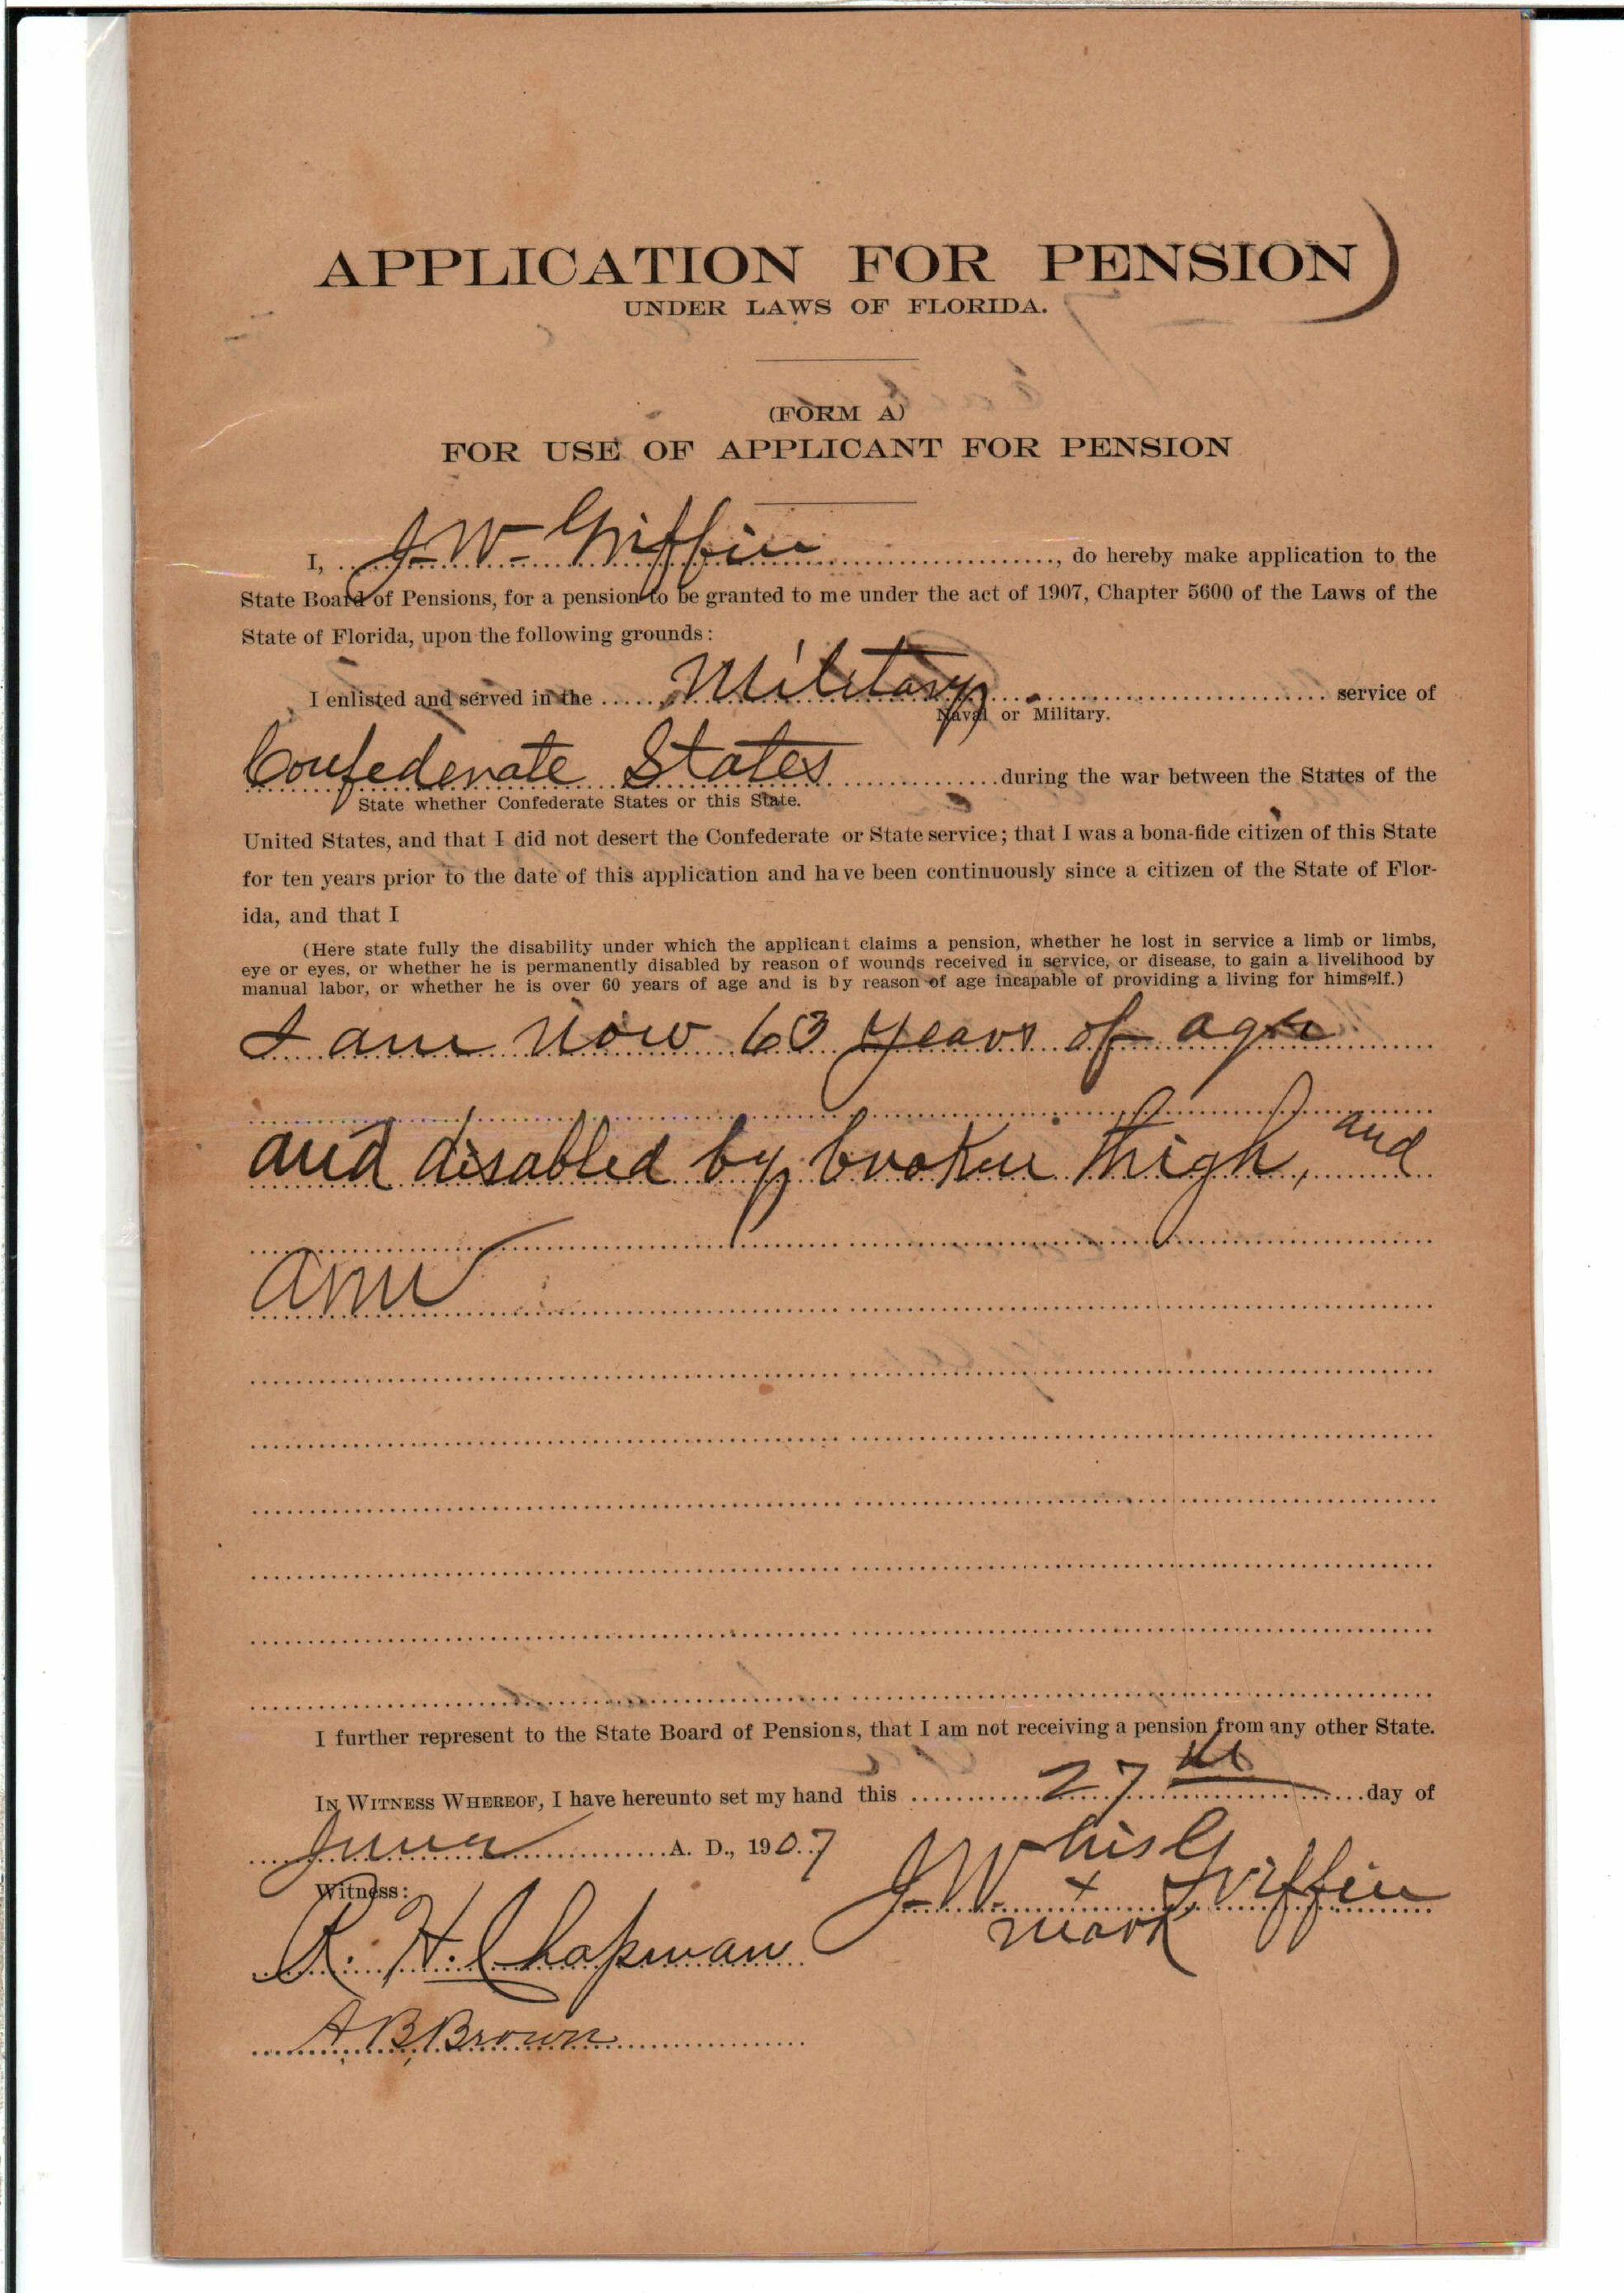 APPLICATION FOR PENSION)
UNDER LAWS OF FLORIDA.
(FORM A)
FOR USE OF APPLICANT FOR PENSION
I, J. W. Griffin, do hereby make application to the
State Board of Pensions, for a pension to be granted to me under the act of 1907, Chapter 5600 of the Laws of the
State of Florida, upon the following grounds:
I enlisted and served in the Military service of
Naval or Military.
Confederate States during the war between the States of the
State whether Confederate States or this State.
United States, and that I did not desert the Confederate or State service; that I was a bona-fide citizen of this State
for ten years prior to the date of this application and have been continuously since a citizen of the State of Flor-
ida, and that I
(Here state fully the disability under which the applicant claims a pension, whether he lost in service a limb or limbs,
eye or eyes, or whether he is permanently disabled by reason of wounds received in service, or disease, to gain a livelihood by
manual labor, or whether he is over 60 years of age and is by reason of age incapable of providing a living for himself.)
I am now 63 years of age
and disabled by broken thigh, and
arm
I further represent to the State Board of Pensions, that I am not receiving a pension from any other State.
IN WITNESS WHEREOF, I have hereunto set my hand this 27th day of
June A. D., 1907
his
Witness: J. W. x Griffin
mark
R. H. Chapman
A. B. Brown